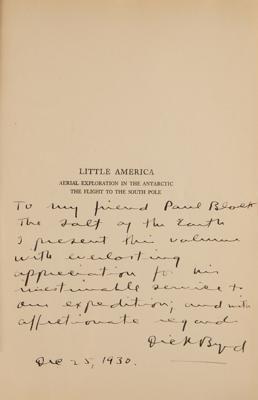 LITTLE AMERICA
AERIAL EXPLORATION IN THE ANTARCTIC
THE FLIGHT TO THE SOUTH POLE
To my friend Paul Block
The Salt of the Earth
I present this volume
with everlasting
appreciation for his
inestimable service to
our expedition; and with
affectionate regard
Dick Byrd
Dec 25, 1930.